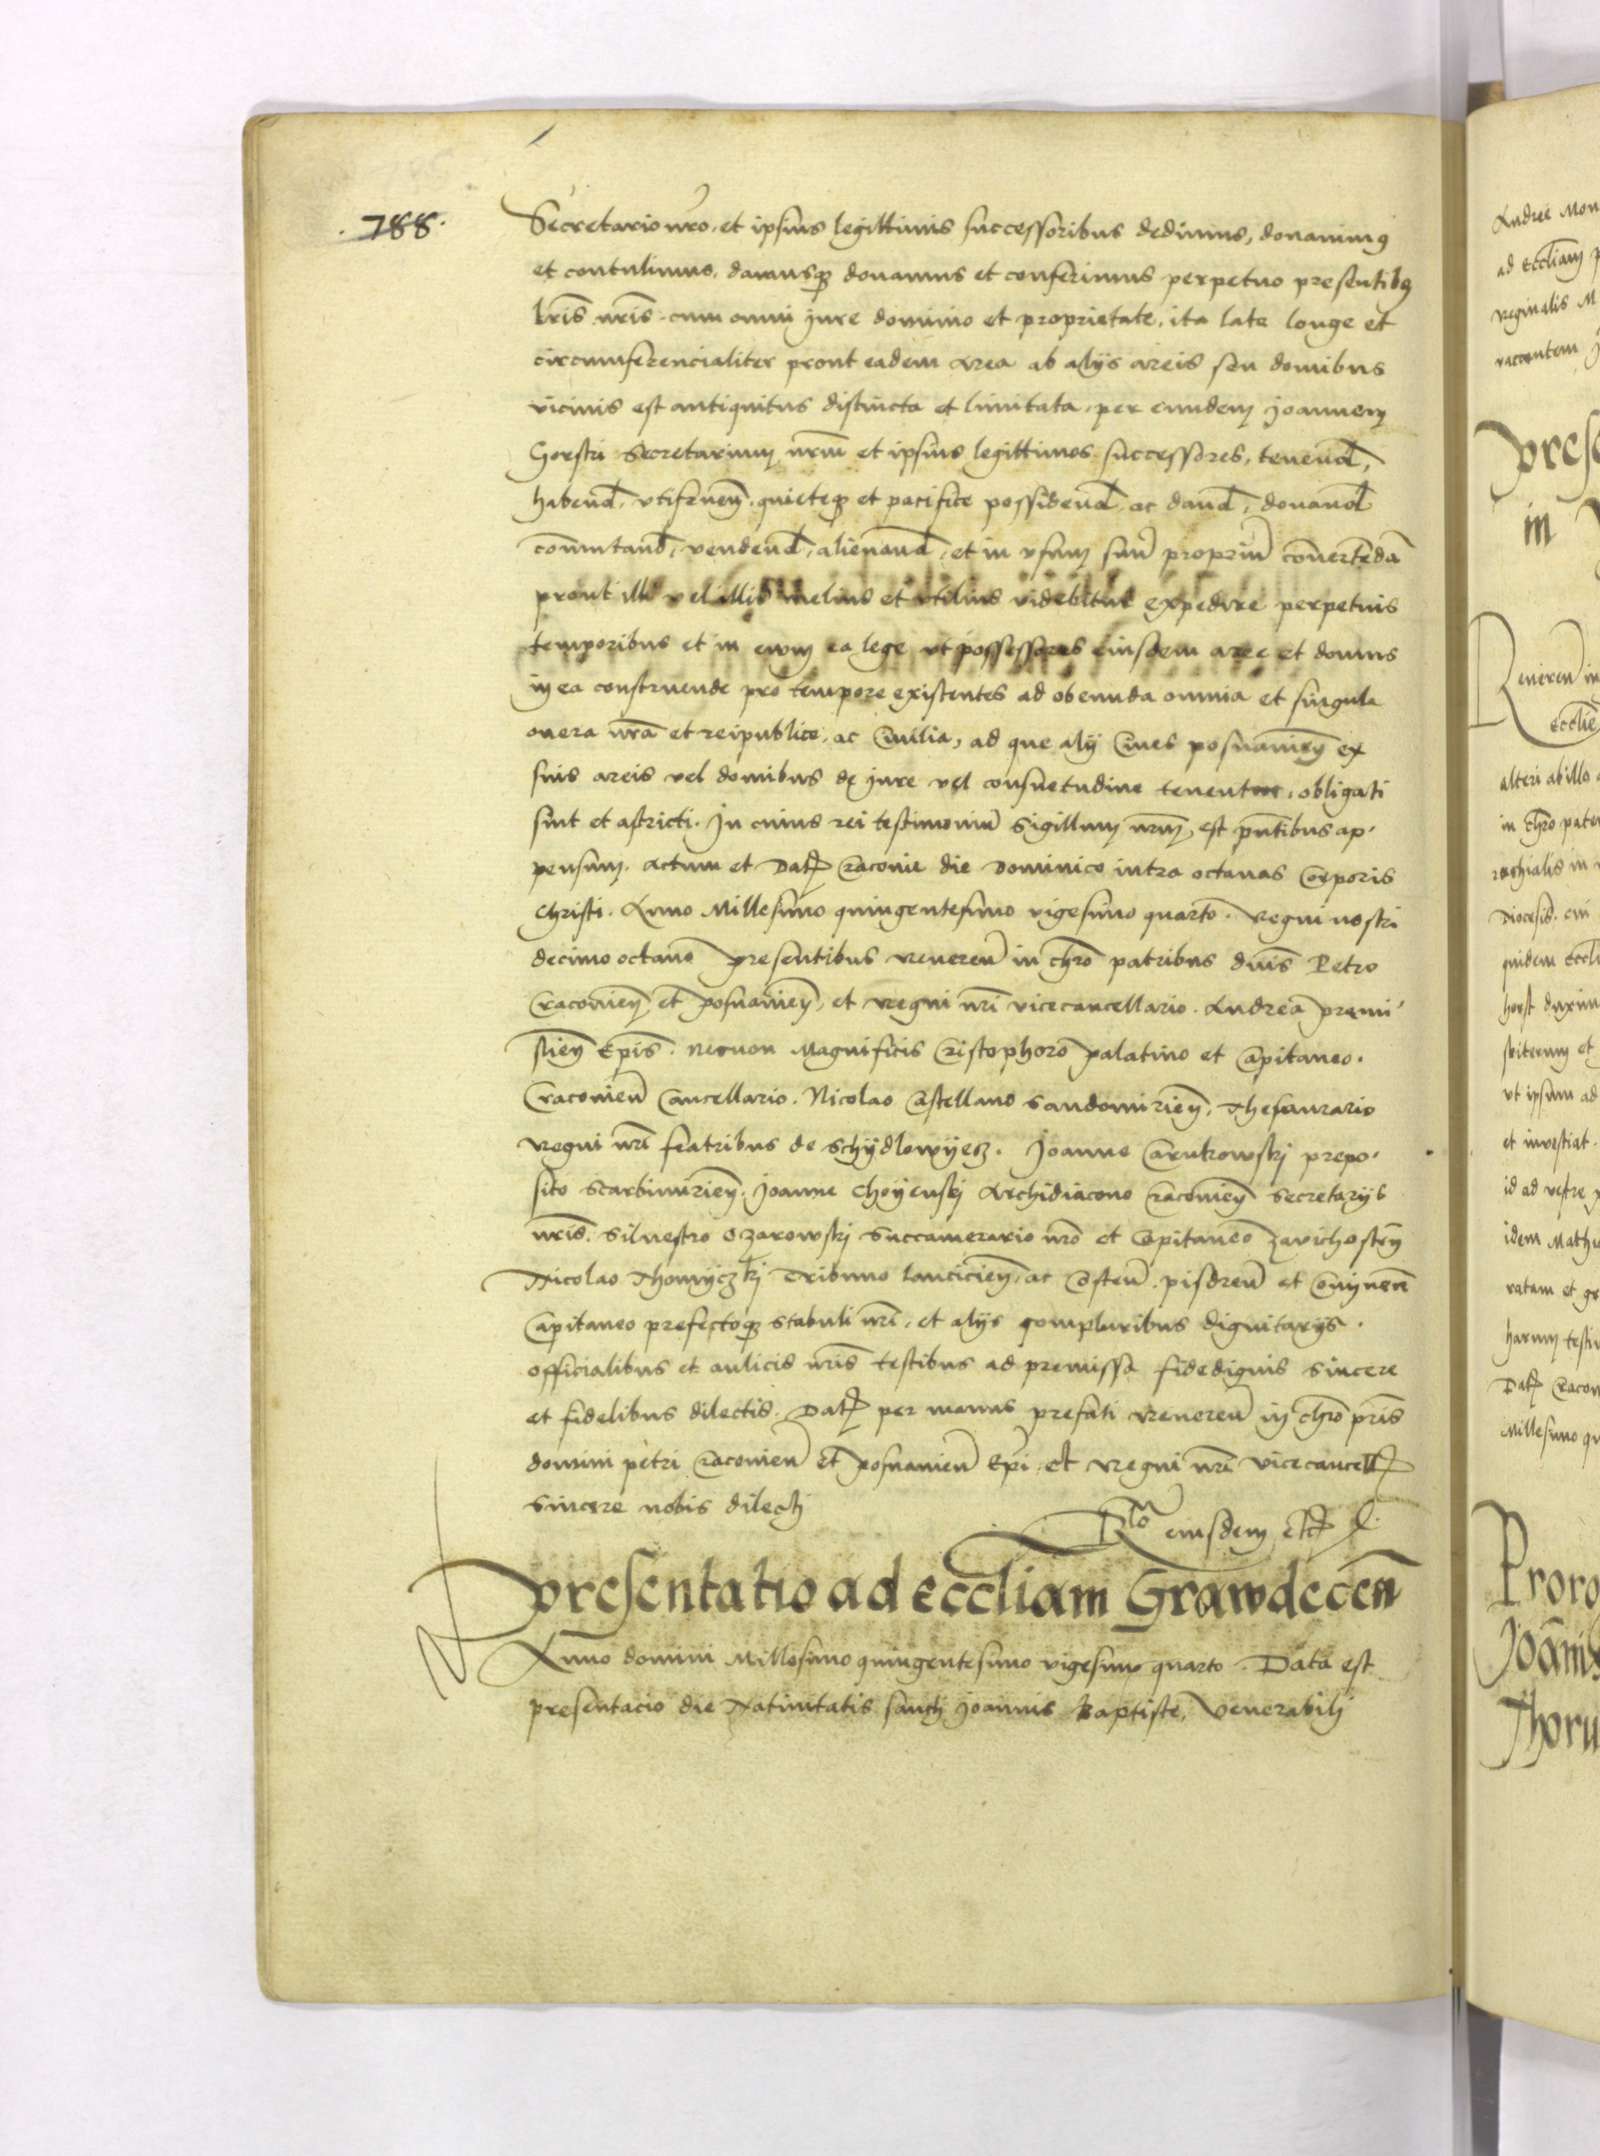 .788.
Secretario nro. et ipsius legittimis successoribus dedimus, donavimus
et contulimus, damusq3 donamus et conferimus perpetuo presentibus
lris nris. cum omni jure dominio et proprietate, ita late longe et
circumferencialiter prout eadem area ab alijs areis seu domibus
vicinis est antiquitus distincta et limitata, per eundem Joannem
Horstri Secretarium nrm et ipsius legittimos successores, tenend,
habend, utifruen, quieteq3 et pacifice possidend, ac dand, donand
comutand, vendend, alienand, et in usum suu propriu convertenda
prout illi vel illis melius et utilius videbitur expedire perpetuis
temporibus et in evum ea lege ut possessores eiusdem aree et domus
in ea construende pro tempore existentes ad obeunda omnia et singula
onera nra et reipublice, ac Civilia, ad que alij Cives posnanien ex
suis areis vel domibus de jure vel consuetudine tenentur, obligati
sint et astricti. In cuius rei testimoniu Sigillum nrm est pntibus ap-
pensum. Actum et Dat Cracovie die Dominico intra octavas Corporis
Christi. Anno Millesimo quingentesimo vigesimo quarto. Regni nostri
decimo octavo presentibus Reveren in chro patribus dnis Petro
Cracovien et posnanien, et Regni nri vicecancellario. Andrea premi-
slien Epis. necnon Magnificis Cristophoro palatino et Capitaneo.
Cracovien Cancellario. Nicolao Castellano Sandomirien. Thesaurario
Regni nri fratribus de Schydlowyecz. Joanne Carnkowskj prepo-
sito Scarbimirien. Joanne Choyenskj Archidiacono Cracovien Secretarijs
nris. Silvestro Ozarowskj Succamerario nro et Capitaneo Zavichosten
Nicolao Thomyczkj Tribuno lancicien, ac Costen. pisdren et Conynen
Capitaneo prefectoq3 stabuli nri, et alijs compluribus dignitarijs.
officialibus et aulicis nris testibus ad premissa fidedignis sincere
et fidelibus dilectis. Dat per manus prefati Reveren in chro pris
domini petri Cracovien et posnanien Epi et Regni nri vicecancell
sincere nobis dilectj
Rlo eiusdem etc
Presentatio ad eccliam Grawdecen
Anno domini Millesimo quingentesimo vigesimo quarto. Data est
presentacio die Nativitatis sanctj Joannis Baptiste, Venerabilj